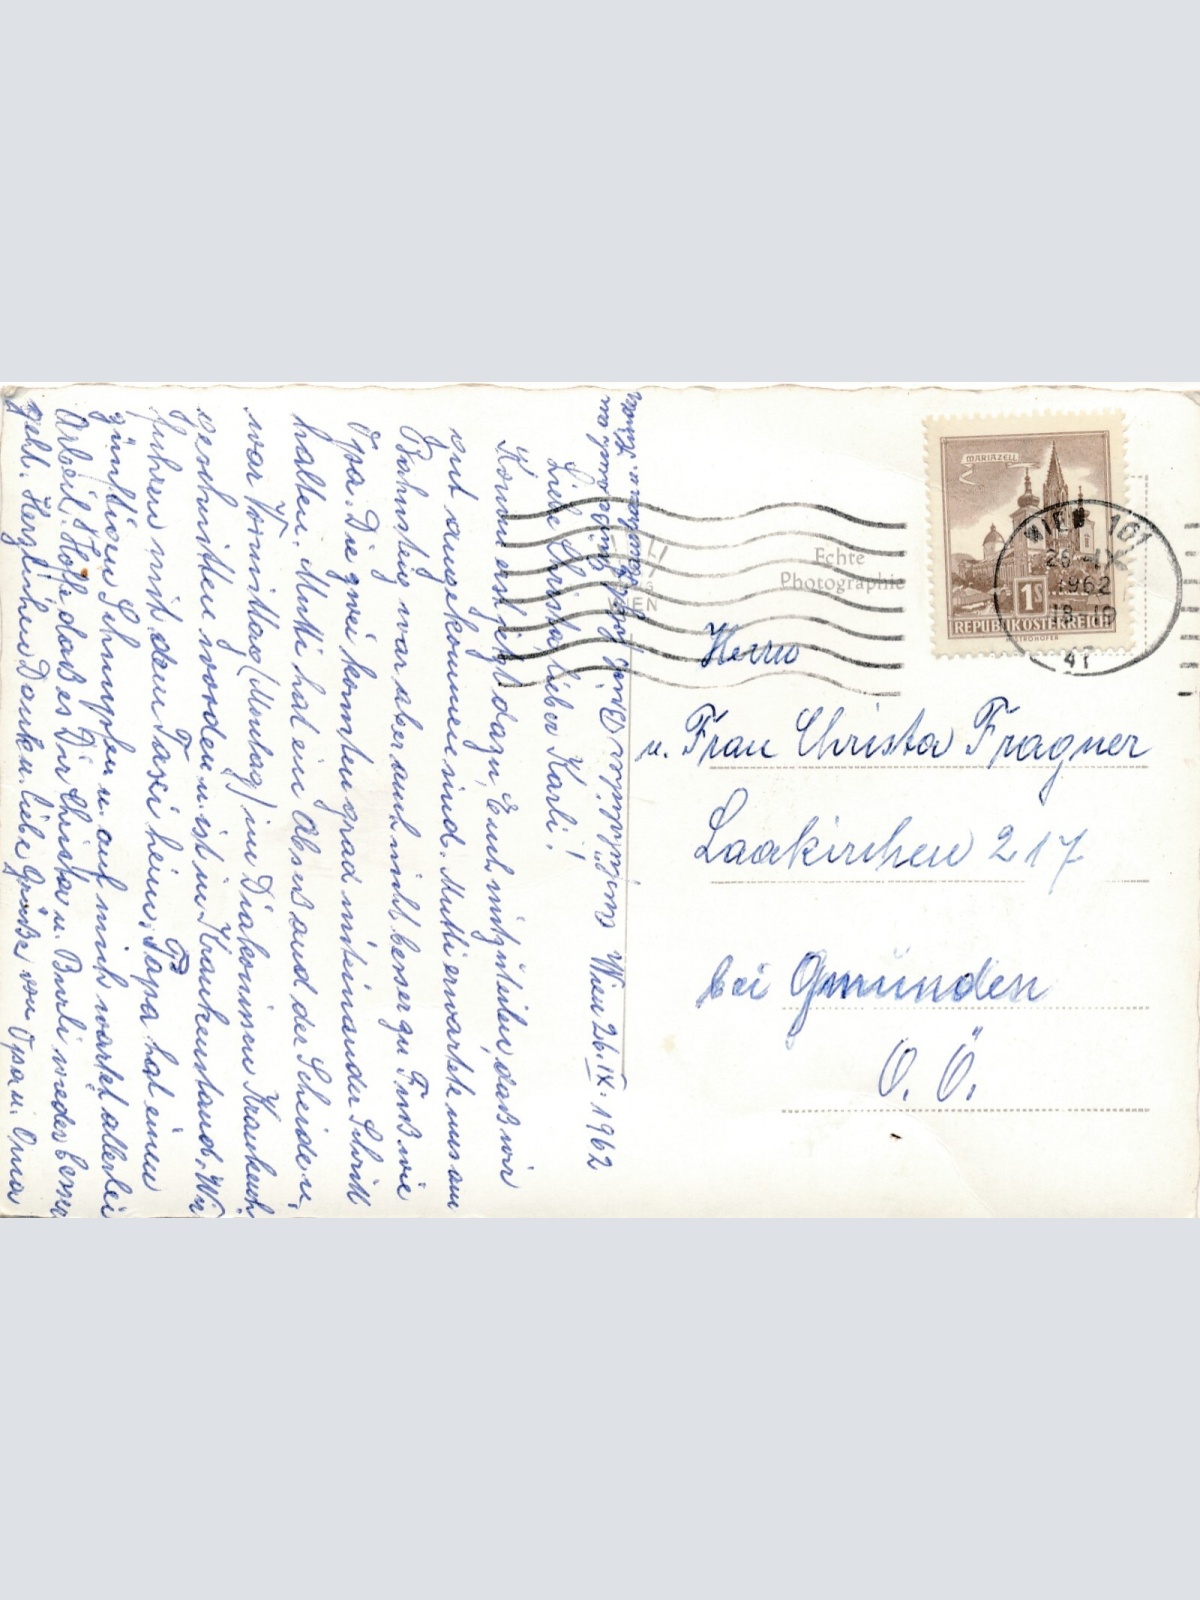 Wien 26. IX. 1962
Liebe Christa, lieber Karli!
Komme erst jetzt dazu, Euch mitzuteilen, daß wir
gut angekommen sind. Mutti erwartete uns am
Bahnsteig war aber auch nicht besser zu Fuß wie
Opa. Die zwei konnten grad miteinander Schritt
halten. Mutti hat ein Absess and der Scheide u.
war Vormittag (Montag) im Diakonissen Krankenh.
geschnitten worden u. ist im Krankenstand. Wir
fuhren mit dem Taxi heim. Papa hat einen
günstigen u. auf mich wartet allerlei
Arbeit. Hoffe daß es Dir Christa u. Burli wieder besser
geht. Herzlichen Dank u. liebe Grüße von Opa u. Oma
Echte
Photographie
WIEN
MARIAZELL
1S
REPUBLIK ÖSTERREICH
WIEN 101
26.-IX
1962
18-19
Herrn
u. Frau Christa Fragner
Laakirchen 217
bei Gmünden
O. Ö.